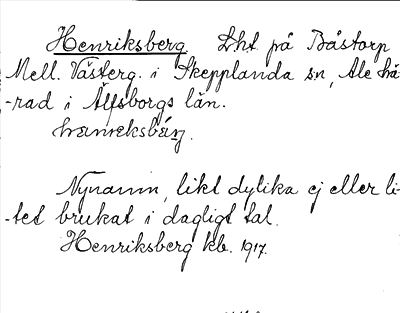 Henriksberg. Lht på Båstorp
Mell. Västerg. i Skepplanda sn, Ale hä-
-rad i Älfsborgs län.

Nynamn, likt dylika ej eller li-
-tet brukat i dagligt tal.
Henriksberg kb. 1917.